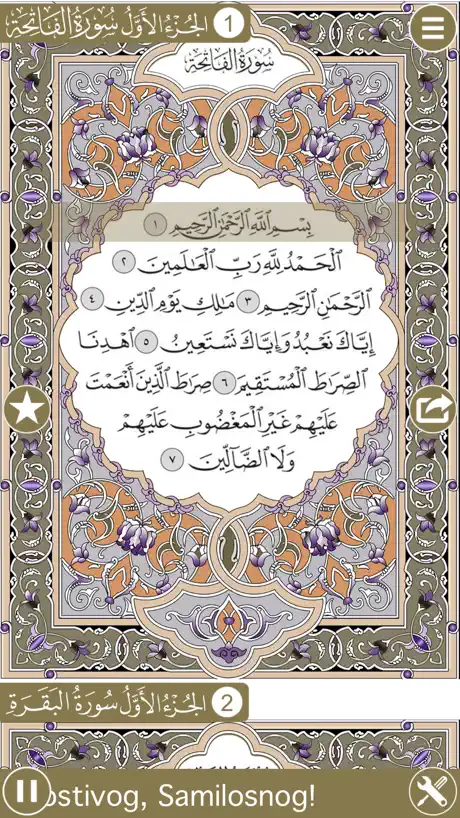 الجُزْءُ الأَوَّلُ سُورَةُ الفَاتِحَةِ 1
سُورَةُ الفَاتِحَةِ
بِسْمِ اللَّهِ الرَّحْمَٰنِ الرَّحِيمِ ١
الْحَمْدُ لِلَّهِ رَبِّ الْعَالَمِينَ ٢
الرَّحْمَٰنِ الرَّحِيمِ ٣ مَالِكِ يَوْمِ الدِّينِ ٤
إِيَّاكَ نَعْبُدُ وَإِيَّاكَ نَسْتَعِينُ ٥ اهْدِنَا
الصِّرَاطَ الْمُسْتَقِيمَ ٦ صِرَاطَ الَّذِينَ أَنْعَمْتَ
عَلَيْهِمْ غَيْرِ الْمَغْضُوبِ عَلَيْهِمْ
وَلَا الضَّالِّينَ ٧
الجُزْءُ الأَوَّلُ سُورَةُ البَقَرَةِ 2
ostivog, Samilosnog!